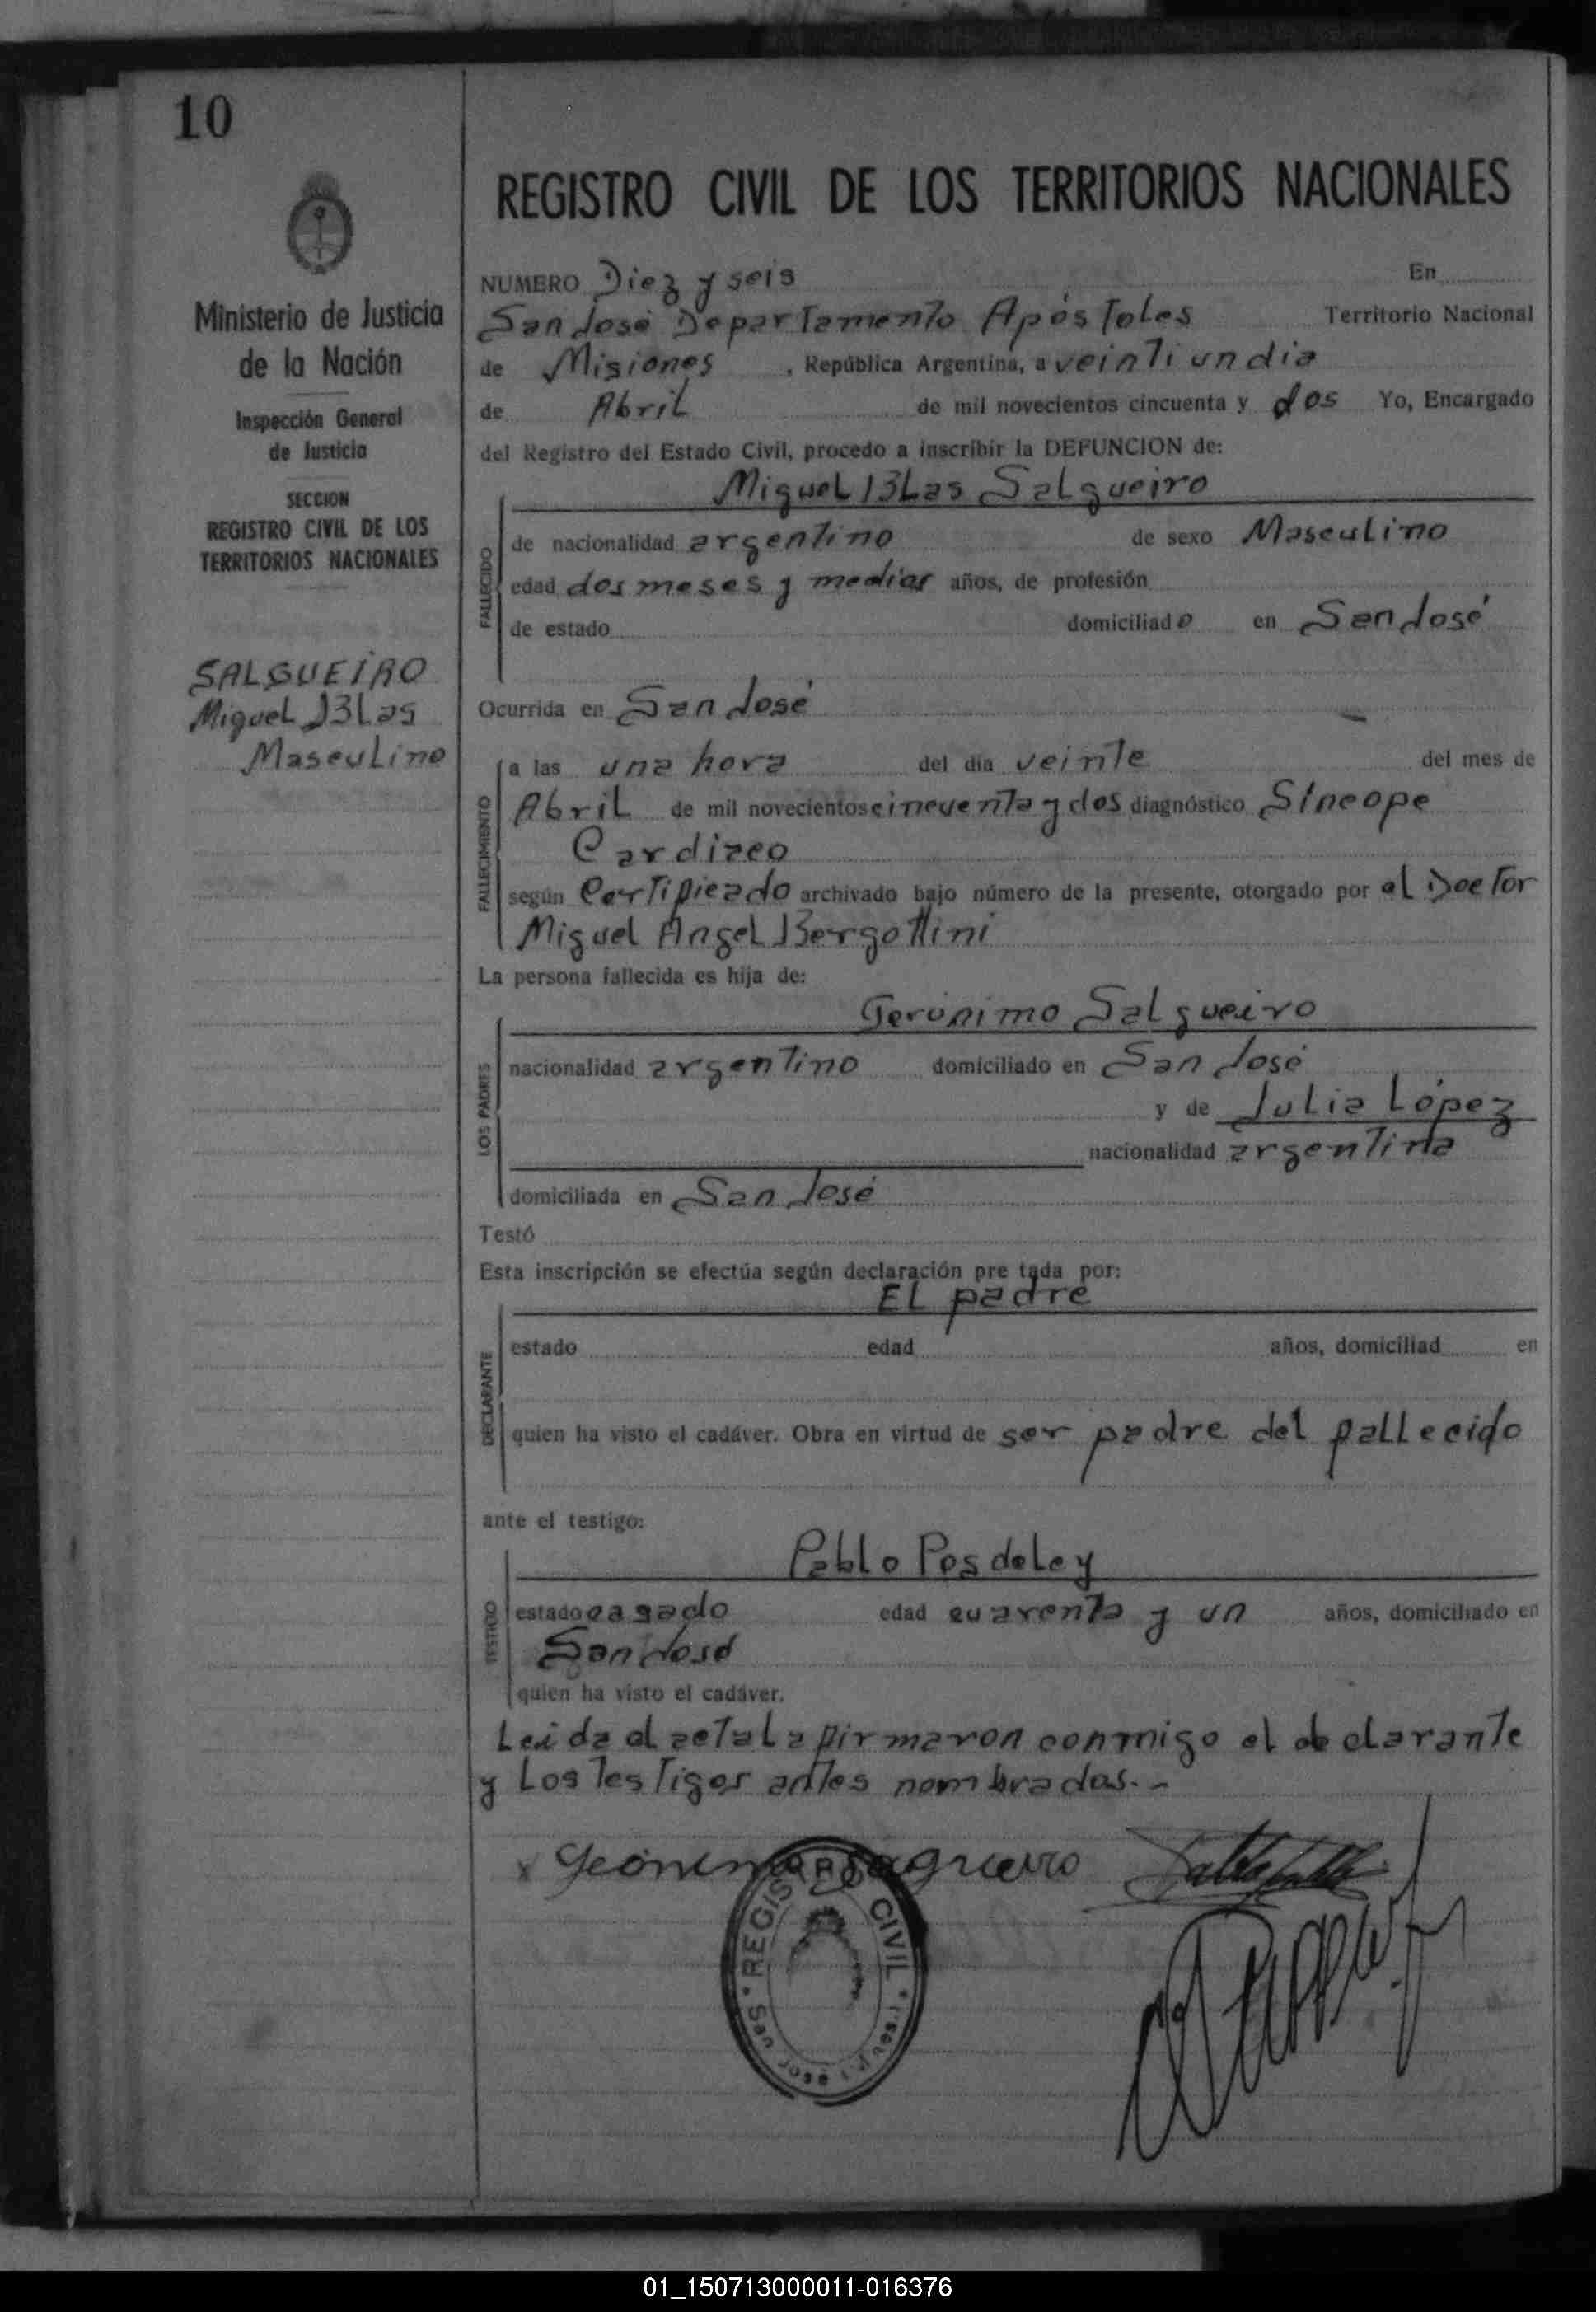 10
Ministerio de Justicia
de la Nación
Inspección General
de Justicia
SECCION
REGISTRO CIVIL DE LOS
TERRITORIOS NACIONALES
SALGUEIRO
Miguel Blas
Masculino
REGISTRO CIVIL DE LOS TERRITORIOS NACIONALES
NUMERO Diez y seis En
San José Departamento Apóstoles Territorio Nacional
de Misiones, República Argentina, a veintiun dia
de Abril de mil novecientos cincuenta y dos Yo, Encargado
del Registro del Estado Civil, procedo a inscribir la DEFUNCION de:
Miguel Blas Salgueiro
FALLECIDO
de nacionalidad argentino de sexo Masculino
edad dos meses y medios años, de profesión
de estado domiciliado en San José
Ocurrida en San José
FALLECIMIENTO
a las una hora del día veinte del mes de
Abril de mil novecientos cincuenta y dos diagnóstico Síncope
Cardiaco
según Certificado archivado bajo número de la presente, otorgado por el Doctor
Miguel Angel Bergottini
La persona fallecida es hija de:
Gerónimo Salgueiro
LOS PADRES
nacionalidad argentino domiciliado en San José
y de Julia López
nacionalidad argentina
domiciliada en San José
Testó
Esta inscripción se efectúa según declaración pre tada por:
El padre
DECLARANTE
estado edad años, domiciliad en
quien ha visto el cadáver. Obra en virtud de ser padre del fallecido
ante el testigo:
Pablo Posdeley
TESTIGO
estado casado edad cuarenta y un años, domiciliado en
San José
quien ha visto el cadáver.
Leida el acta la firmaron conmigo el declarante
y los testigos antes nombrados.-
x
REGISTRO CIVIL
San José
01_150713000011-016376